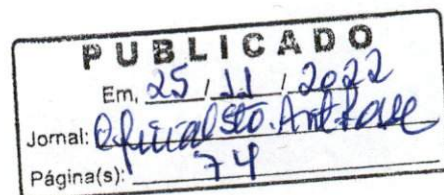 PUBLICADO
Em, 25 / 11 / 2022
Jornal: Oficial sto. Ant. Posse
Página(s): 74